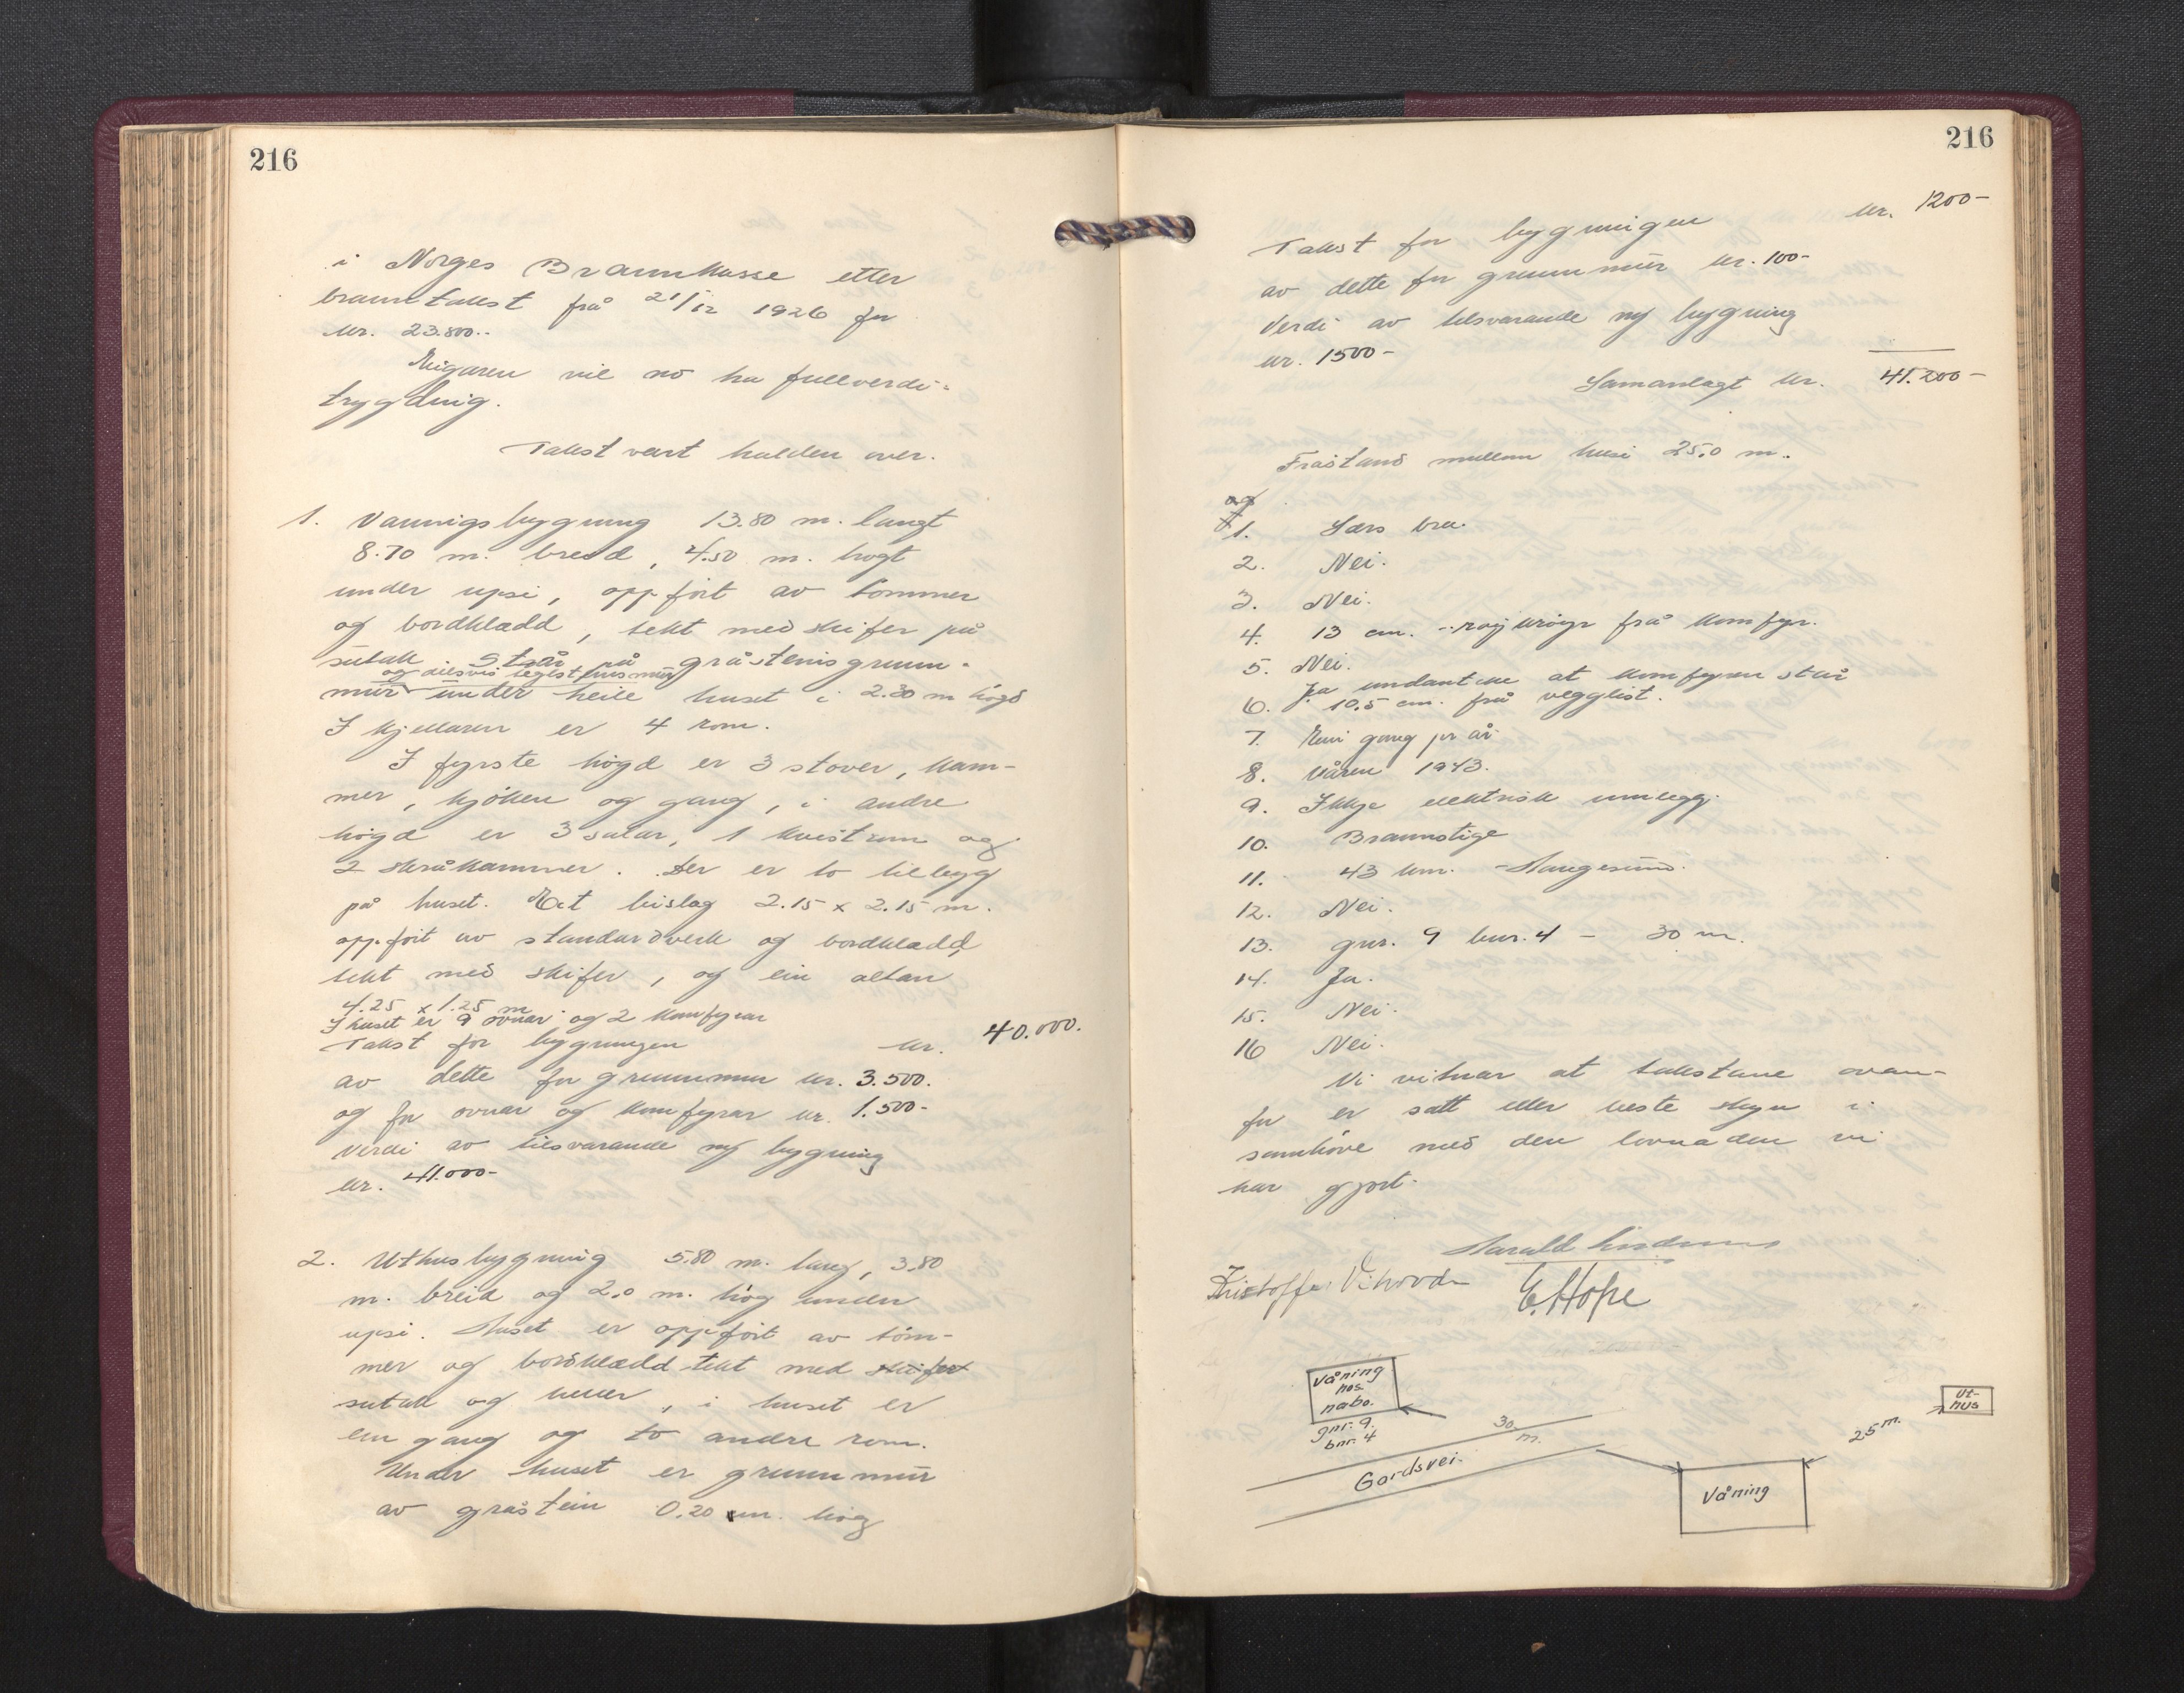 216
i Norges Brannkasse etter
branntakst frå 21/12 1926 for
kr. 23.800..
Eigaren vil no ha fullverdi-
trygding.
Takst vart halden over.
1. Vaanigsbygning 13.80 m. langt
8.70 m. breid, 4.50 m. høgt
under upsi, oppført av tømmer
og bordklædd, tekt med skifer på
sutak. Står på gråsteinsgrunn-
og delsvis teglsteinsmur
mur under heile huset i 2.30 m høgd
I kjellaren er 4 rom.
I fyrste høgd er 3 stover, kam-
mer, kjøken og gang, i andre
høgd er 3 salar, 1 kvistrom og
2 skråkammer. Der er to tilbygg
på huset. Eit bislag 2.15 x 2.15 m.
oppført av standardverk og bordklædd,
tekt med skifer, og ein altan
4.25 x 1.25 m.
I huset er 9 ovnar og 2 komfyrar
Takst for bygningen kr. 40.000.
av dette for grunnmur kr. 3.500.
og for ovnar og komfyrar kr. 1.500-
Verdi av tilsvarande ny bygning
kr. 41.000-
2. Uthusbygning 5.80 m. lang, 3.80
m. breid og 2.0 m. høg under
upsi. Huset er oppført av tøm-
mer og bordklædd tekt med skifer
sutak og heller, i huset er
ein gang og to andre rom.
Under huset er grunnmur
av gråstein 0.20 m. høg
216
Takst for bygningen kr. 1200-
av dette for grunnmur kr. 100-
Verdi av tilsvarande ny bygning
kr. 1500-
Samanlagt kr. 41.200-
Fråstand mellom husi 25.0 m.
1. Særs bra.
2. Nei.
3. Nei.
4. 13 cm. røykrøyr frå komfyr.
5. Nei.
6. Ja undantake at komfyren står
10.5 cm. frå vegglist.
7. Ein gang pr år
8. Våren 1943.
9. Ikkje elektrisk innlegg.
10. Brannstige
11. 43 km. Haugesund.
12. Nei.
13. gnr. 9 bnr. 4 - 30 m.
14. Ja.
15. Nei.
16 Nei.
Vi vitnar at takstane ovan-
for er satt etter beste skyn i
samhøve med den lovnaden vi
har gjort.
Harald
Kristoffer
E. Hope
Våning
hos
nabo.
gnr. 9.
bnr. 4
30
m.
Gardsvei.
Våning
25 m.
Ut-
hus